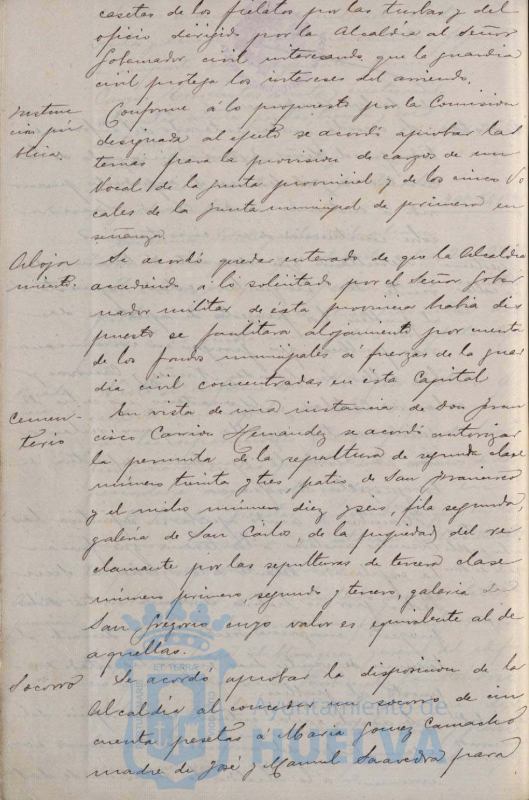 casetas de los fielatos por las turbas y del
oficio dirigido por la Alcaldía al Señor
Gobernador civil interesando que la guardia
civil proteja los intereses del arriendo.
Instruc-
ción pú-
blica.
Conforme á lo propuesto por la Comision
designada al efecto se acordó aprobar las
ternas para la provision de cargos de un
Vocal de la Junta provincial y de los cinco Vo
cales de la Junta municipal de primera en
señanza.
Aloja
miento.
Se acordó quedar enterado de que la Alcaldía
accediendo á lo solicitado por el Señor Gober
nador militar de ésta provincia habia dis
puesto se facilitara alojamiento por cuenta
de los fondos municipales á fuerzas de la guar
dia civil concentradas en ésta Capital
Cemen-
terio
En vista de una instancia de Don Fran
cisco Hernandez se acordó autorizar
la permuta de la sepultura de segunda clase
número treinta y tres, patio de San Francisco
y el nicho número diez y seis, fila segunda,
galeria de San Carlos, de la propiedad del re-
clamante por las sepulturas de tercera clase
número primero, segundo y tercero, galeria de
San Gregorio cuyo valor es equivalente al de
aquellas.
Socorro
Se acordó aprobar la disposicion de la
Alcaldía al conceder un socorro de cin
cuenta pesetas á Maria Gomez Camacho,
madre de José y Manuel Saavedra para
Ayuntamiento de
HUELVA